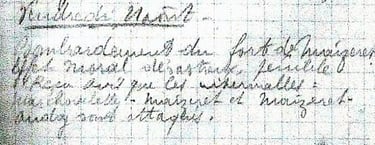 Vendredi 21 août.
Bombardement du fort de Maizeret
Effet moral désastreux, pénible
Reçu avis que les intervalles :
Marchovelette - Maizeret et Maizeret-
Andoy sont attaqués.